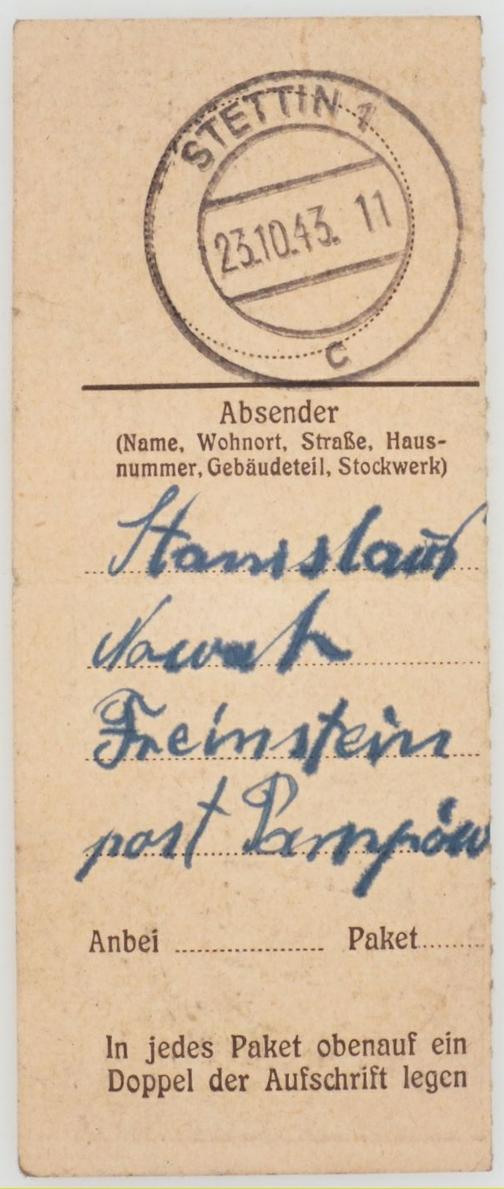 STETTIN 1
23.10.43. 11
c
Absender
(Name, Wohnort, Straße, Haus-
nummer, Gebäudeteil, Stockwerk)
Stanislaus
Nowak
Freinstein
post Pampów
Anbei .................. Paket........
In jedes Paket obenauf ein
Doppel der Aufschrift legen